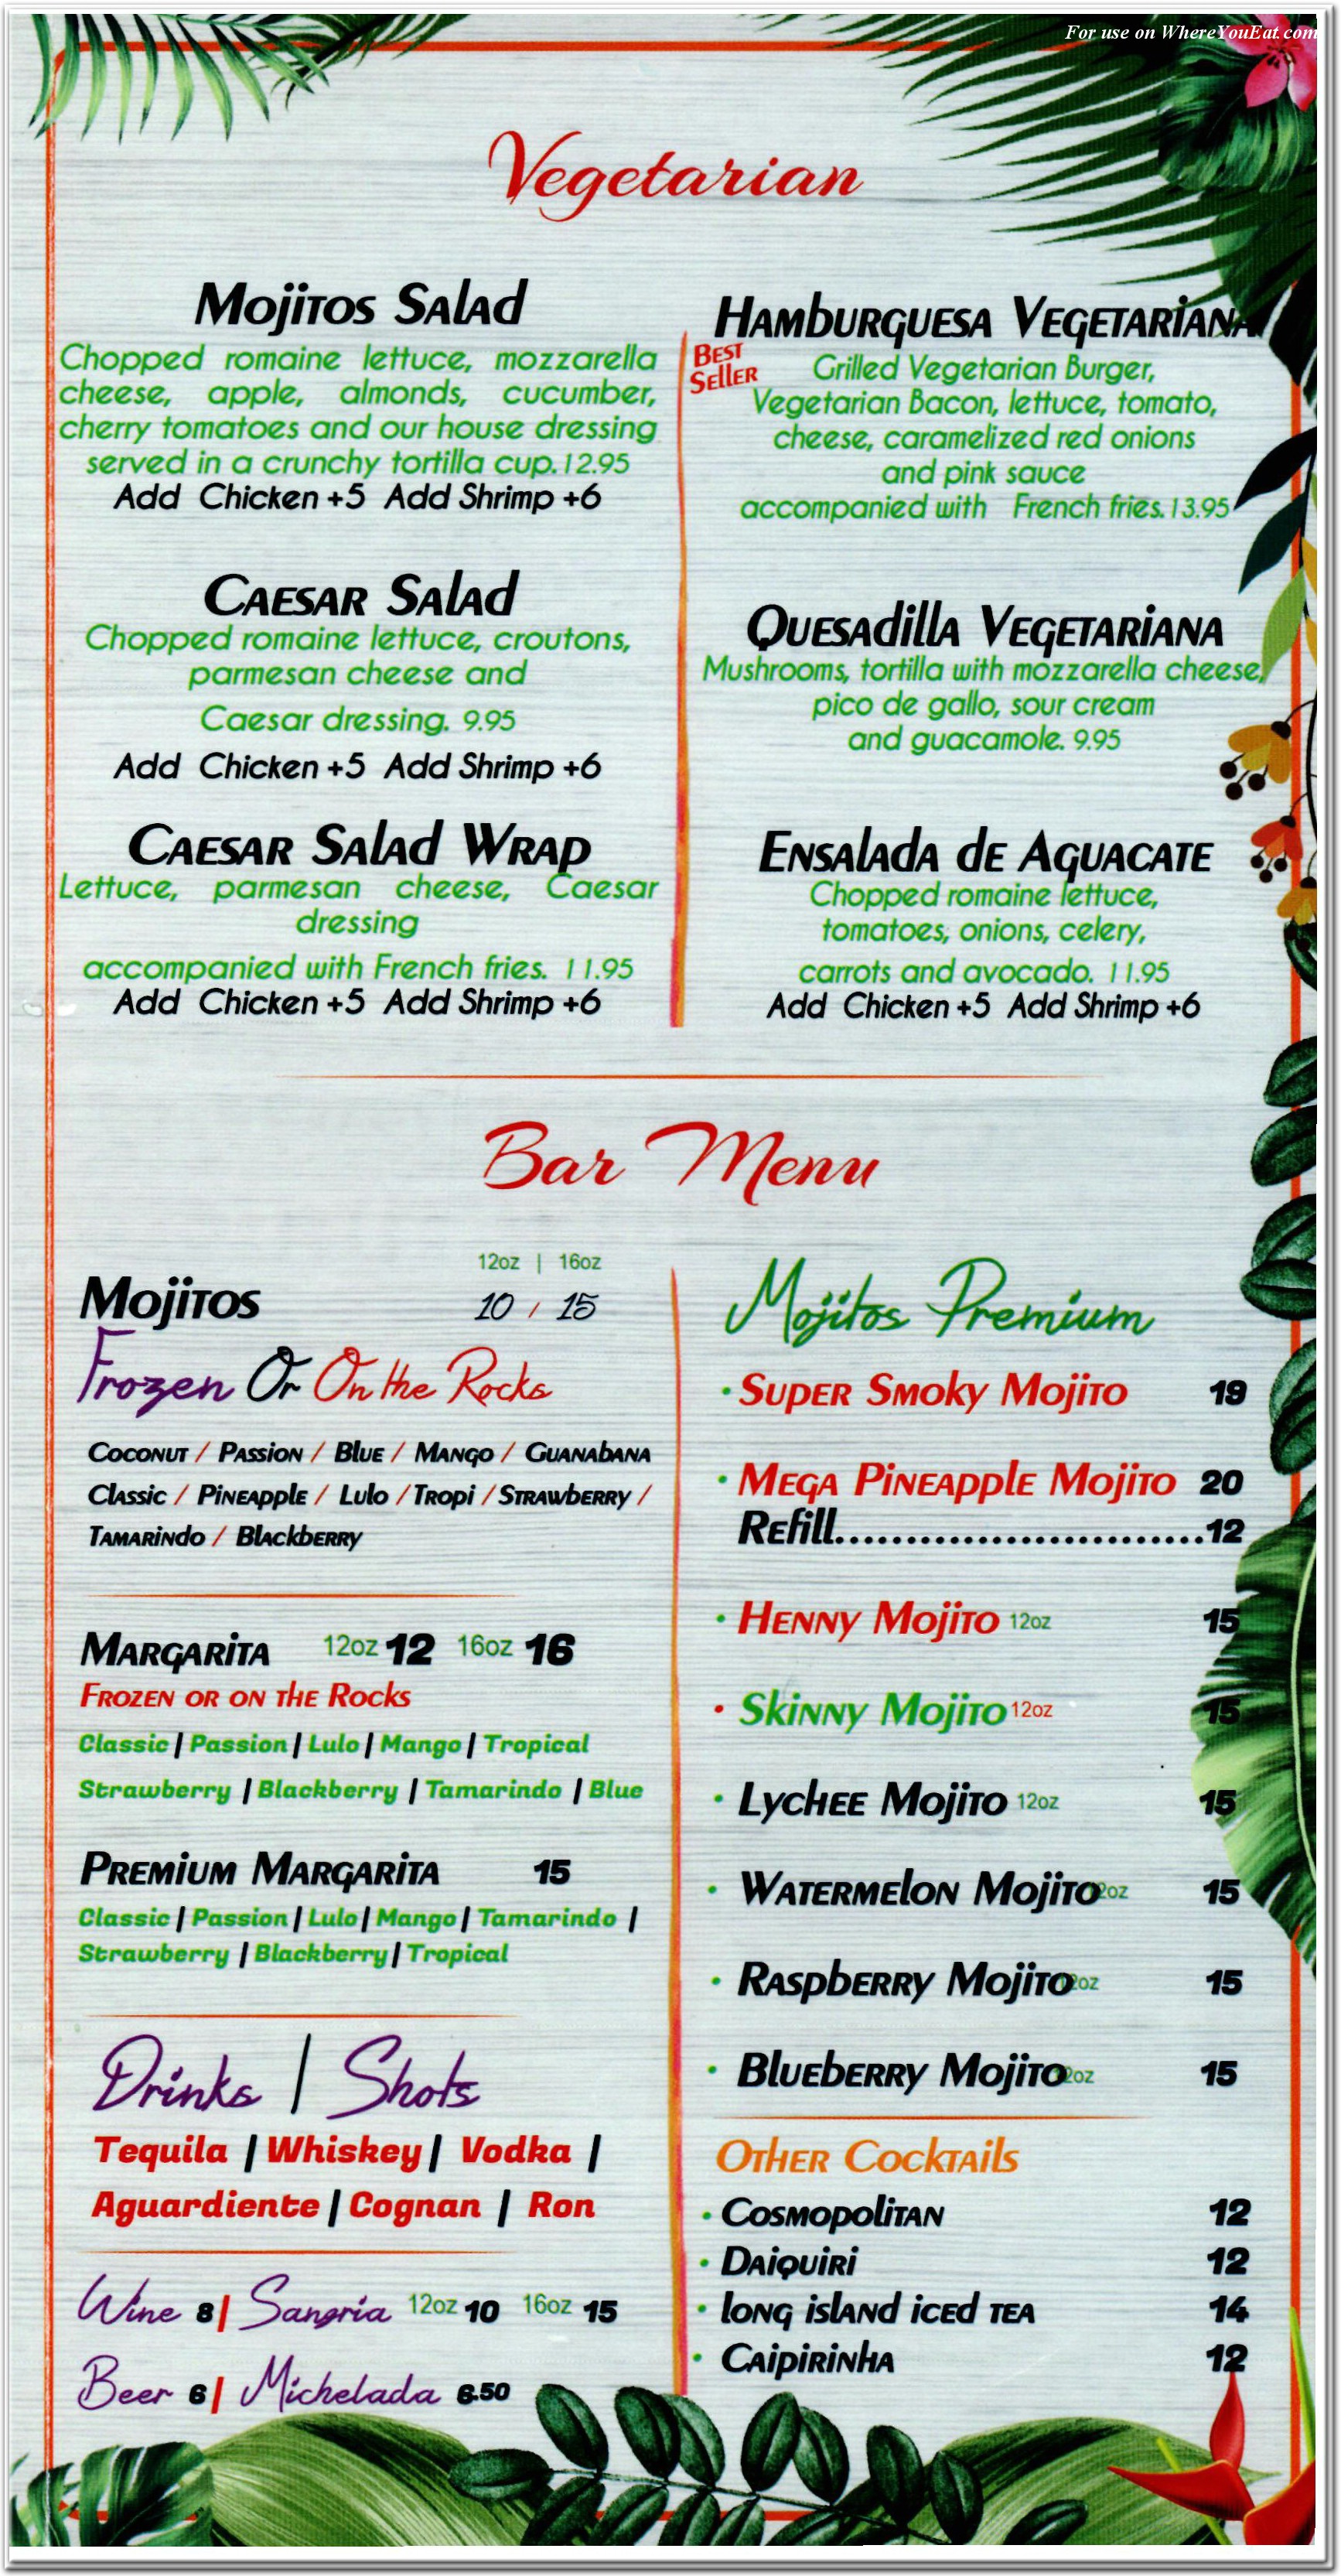 For use on WhereYouEat.com
Vegetarian
Mojitos Salad
Chopped romaine lettuce, mozzarella
cheese, apple, almonds, cucumber,
cherry tomatoes and our house dressing
served in a crunchy tortilla cup.12.95
Add Chicken +5 Add Shrimp +6
Caesar Salad
Chopped romaine lettuce, croutons,
parmesan cheese and
Caesar dressing. 9.95
Add Chicken +5 Add Shrimp +6
Caesar Salad Wrap
Lettuce, parmesan cheese, Caesar
dressing
accompanied with French fries. 11.95
Add Chicken +5 Add Shrimp +6
Hamburguesa Vegetariana
Best
Seller
Grilled Vegetarian Burger,
Vegetarian Bacon, lettuce, tomato,
cheese, caramelized red onions
and pink sauce
accompanied with French fries.13.95
Quesadilla Vegetariana
Mushrooms, tortilla with mozzarella cheese,
pico de gallo, sour cream
and guacamole. 9.95
Ensalada de Aguacate
Chopped romaine lettuce,
tomatoes, onions, celery,
carrots and avocado. 11.95
Add Chicken +5 Add Shrimp +6
Bar Menu
12oz | 16oz
Mojitos 10 / 15
Frozen Or On the Rocks
Coconut / Passion / Blue / Mango / Guanabana
Classic / Pineapple / Lulo / Tropi / Strawberry /
Tamarindo / Blackberry
Margarita 12oz 12 16oz 16
Frozen or on the Rocks
Classic | Passion | Lulo | Mango | Tropical
Strawberry | Blackberry | Tamarindo | Blue
Premium Margarita 15
Classic | Passion | Lulo | Mango | Tamarindo |
Strawberry | Blackberry | Tropical
Drinks | Shots
Tequila | Whiskey | Vodka |
Aguardiente | Cognan | Ron
Wine 8 | Sangria 12oz 10 16oz 15
Beer 6 | Michelada 6.50
Mojitos Premium
• Super Smoky Mojito 19
• Mega Pineapple Mojito 20
Refill..........................12
• Henny Mojito 12oz 15
• Skinny Mojito 12oz 15
• Lychee Mojito 12oz 15
• Watermelon Mojito 12oz 15
• Raspberry Mojito 12oz 15
• Blueberry Mojito 12oz 15
Other Cocktails
• Cosmopolitan 12
• Daiquiri 12
• long island iced tea 14
• Caipirinha 12